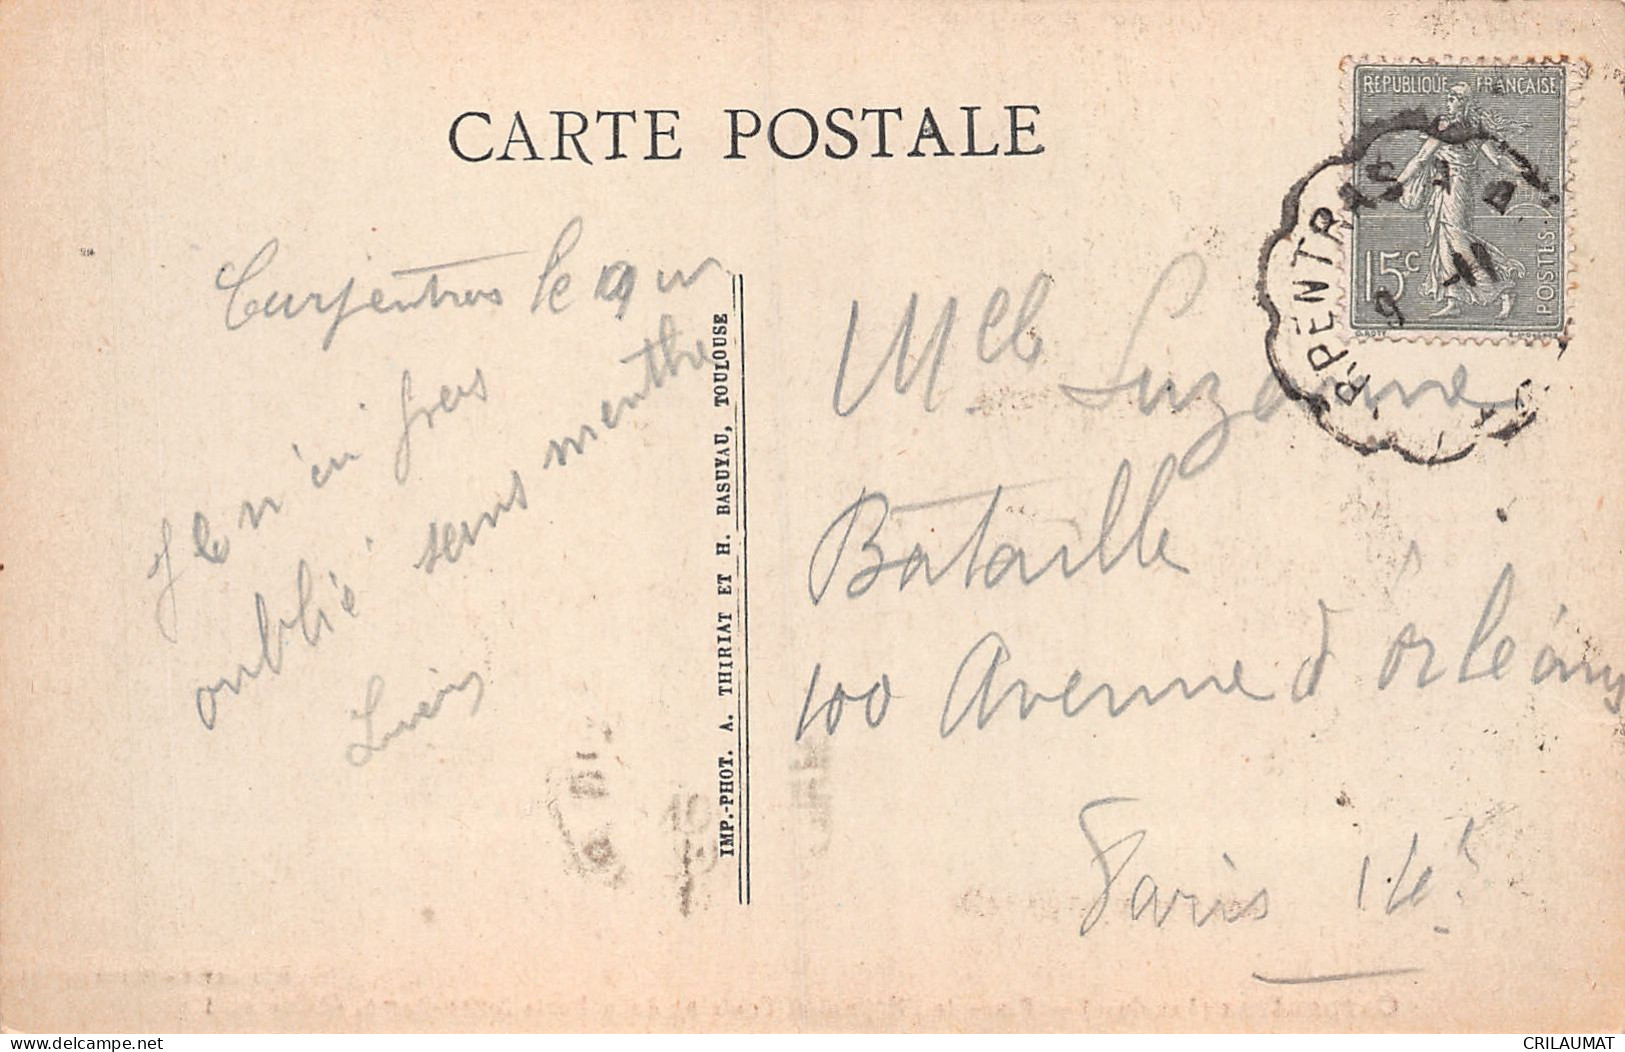 CARTE POSTALE
REPUBLIQUE FRANÇAISE
15c
POSTES
RPENTRAS
9 -11
Carpentras le 9
Je n'en frais
oublié sans menthe
Lucien
IMP.-PHOT. A. THIRIAT ET H. BASUYAU, TOULOUSE
Mlle Suzanne
Bataille
100 Avenue d'Orléans
Paris 14e
delcampe.net
CRILAUMAT